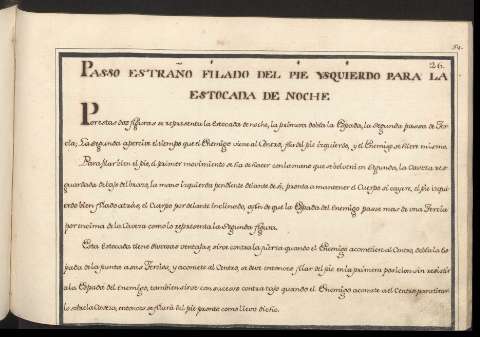 26.
PASSO ESTRAÑO FILADO DEL PIE YSQUIERDO PARA LA
ESTOCADA DE NOCHE
Por estas dos figuras se representa la estocada de noche, la primera dobla la Espada, la segunda passata de Ter-
cia; La segunda apercive el tiempo que el Enemigo viene al Centro, filar del pie izquierdo, y el Enemigo se hiere mismo.
Para filar bien el pie, el primer movimiento se ha de hacer con la mano que se bolverá en segunda, la Cavesa res-
guardada debajo del brazo, la mano izquierda pendiente delante de si, pronta a mantener el Cuerpo si cayere, el pie izqui-
erdo bien filado atrás, el Cuerpo por delante Inclinado, a fin de que la Espada del enemigo passe mas de una Tercia
por encima de la Cavesa como lo representa la segunda figura.
Esta Estocada tiene diversas ventajas, sirve contra la fuerza quando el Enemigo acomete en al Centro, dobla la Es-
pada de la punta a som Tercia, y acomete al Centro, se deve entonces filar del pie en la primera posicion sin resistir
a la Espada del Enemigo, tambien sirve con sucesso contra tajo quando el Enemigo acomete a el Centro para tirar-
lo sobre la Cavesa, entonces se filará del pie pronto como llevo dicho.